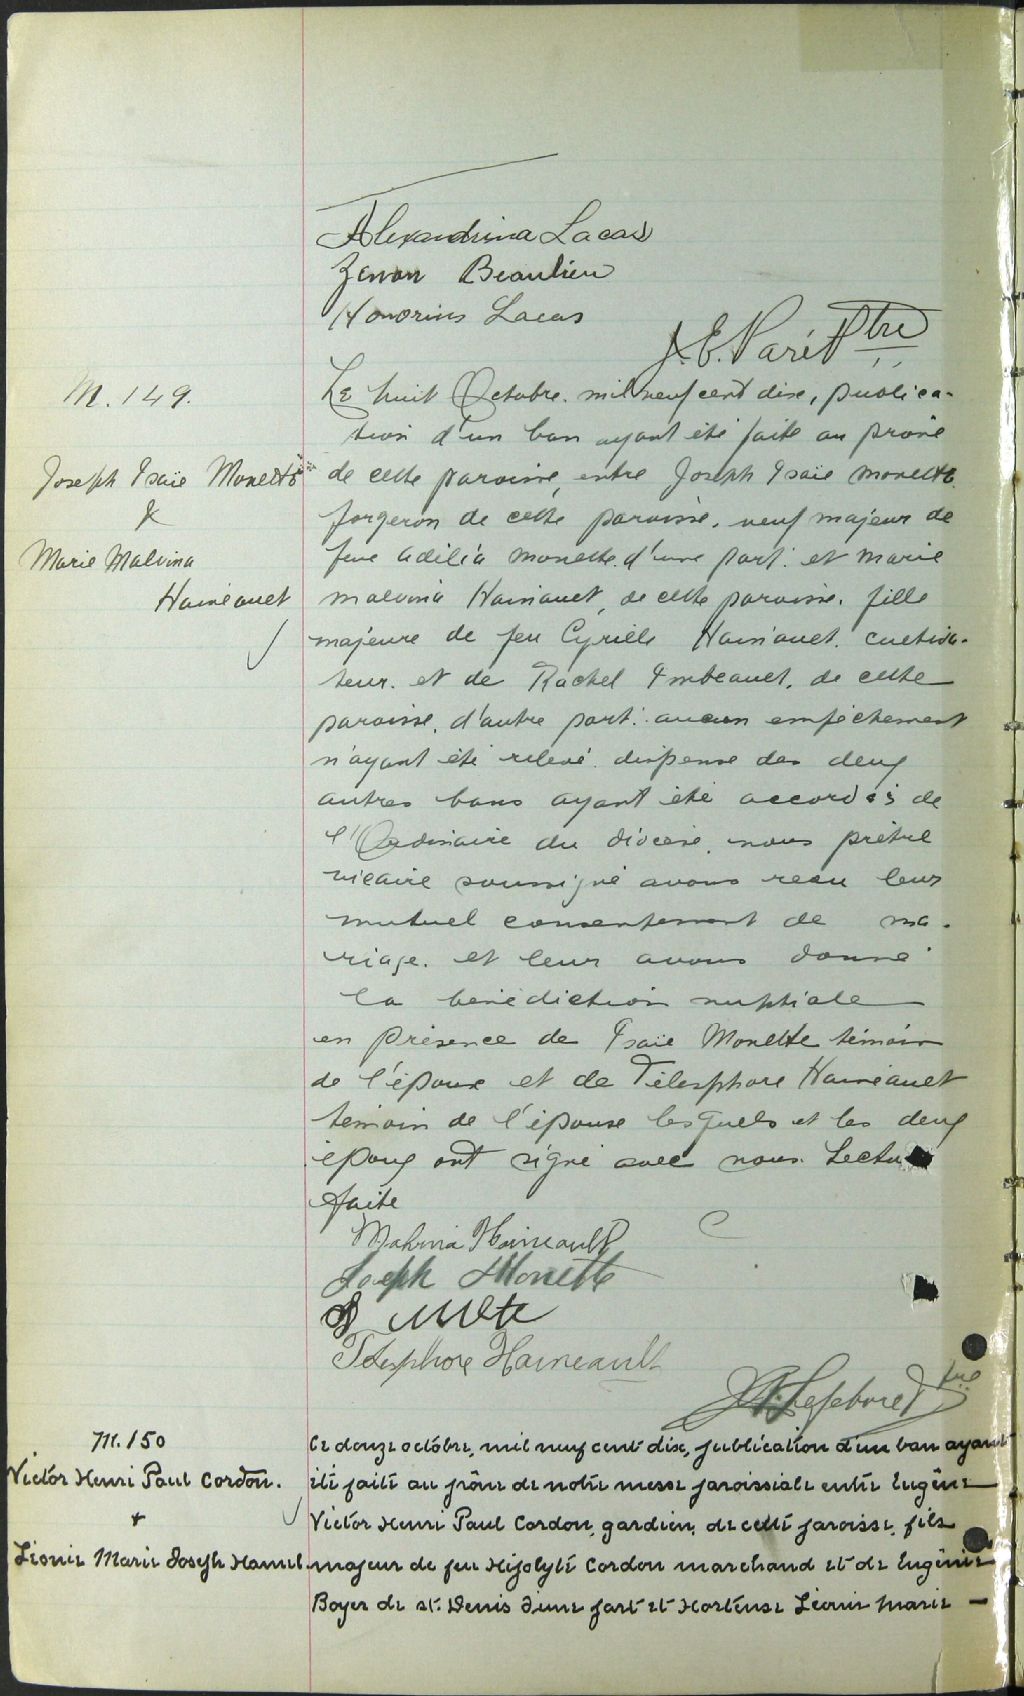 Alexandrina Lacass
Zenon Beaulieu
Honorius Lacas
J. E. Paré Ptre
M. 149.
Joseph Isaïe Monette
&
Marie Malvina
Haineault
Le huit Octobre. mil neuf cent dix, publica-
tion d'un ban ayant été faite au prone
de cette paroisse, entre Joseph Isaïe Monette
forgeron de cette paroisse. veuf majeur de
feue Adilia Monette. d'une part. et Marie
Malvina Hainault, de cette paroisse. fille
majeure de feu Cyrille Hainault. cultiva-
teur. et de Rachel Imbeault. de cette
paroisse. d'autre part. aucun empêchement
n'ayant été relevé. dispense des deux
autres bans ayant été accordés de
l'Ordinaire du diocèse. nous prêtre
vicaire soussigné avons recu leur
mutuel consentement de ma-
riage. et leur avons donné
la bénédiction nuptiale
en présence de Isaïe Monette témoin
de l'époux et de Télesphore Haineault
témoin de l'épouse lesquels et les deux
époux ont signé avec nous. Lectu
faite
Malvina Haineault
Joseph Monette
Télesphore Haineault
Lefebvre Ptre
M. 150
Victor Henri Paul Cordon.
+
Léonie Marie Joseph Hamel
Le douze octobre, mil neuf cent dix, publication d'un ban ayant
été faite au prône de notre messe paroissiale entre Eugène
Victor Henri Paul Cordon, gardien, de cette paroisse, fils
majeur de feu Hipolyte Cordon marchand et de Eugénie
Boyer de St. Denis d'une part et Hortense Léonie Marie —